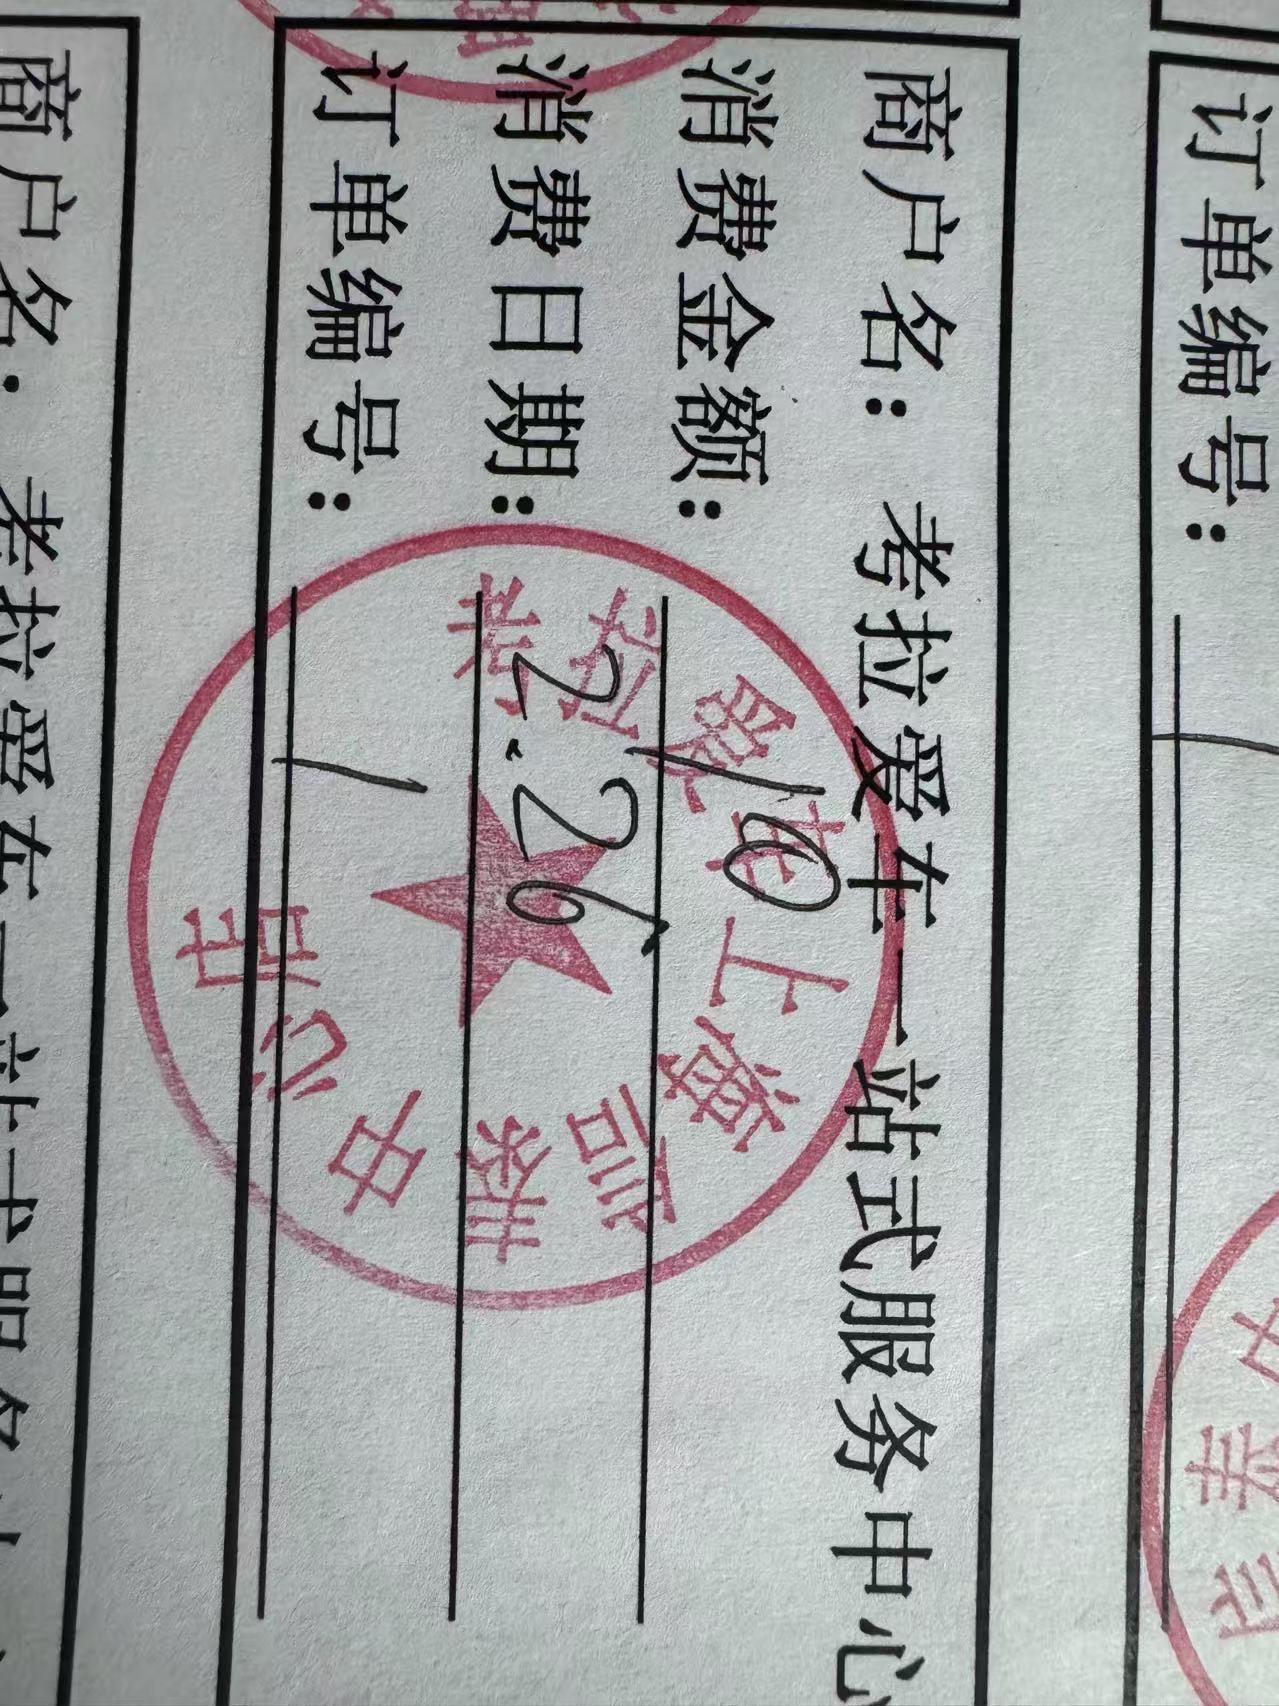 订单编号: /
商户名: 考拉爱车一站式服务中心
消费金额: 10
消费日期: 2.26
订单编号: /
考拉爱车上海
中心店
商户名: 考拉爱车一站式服务